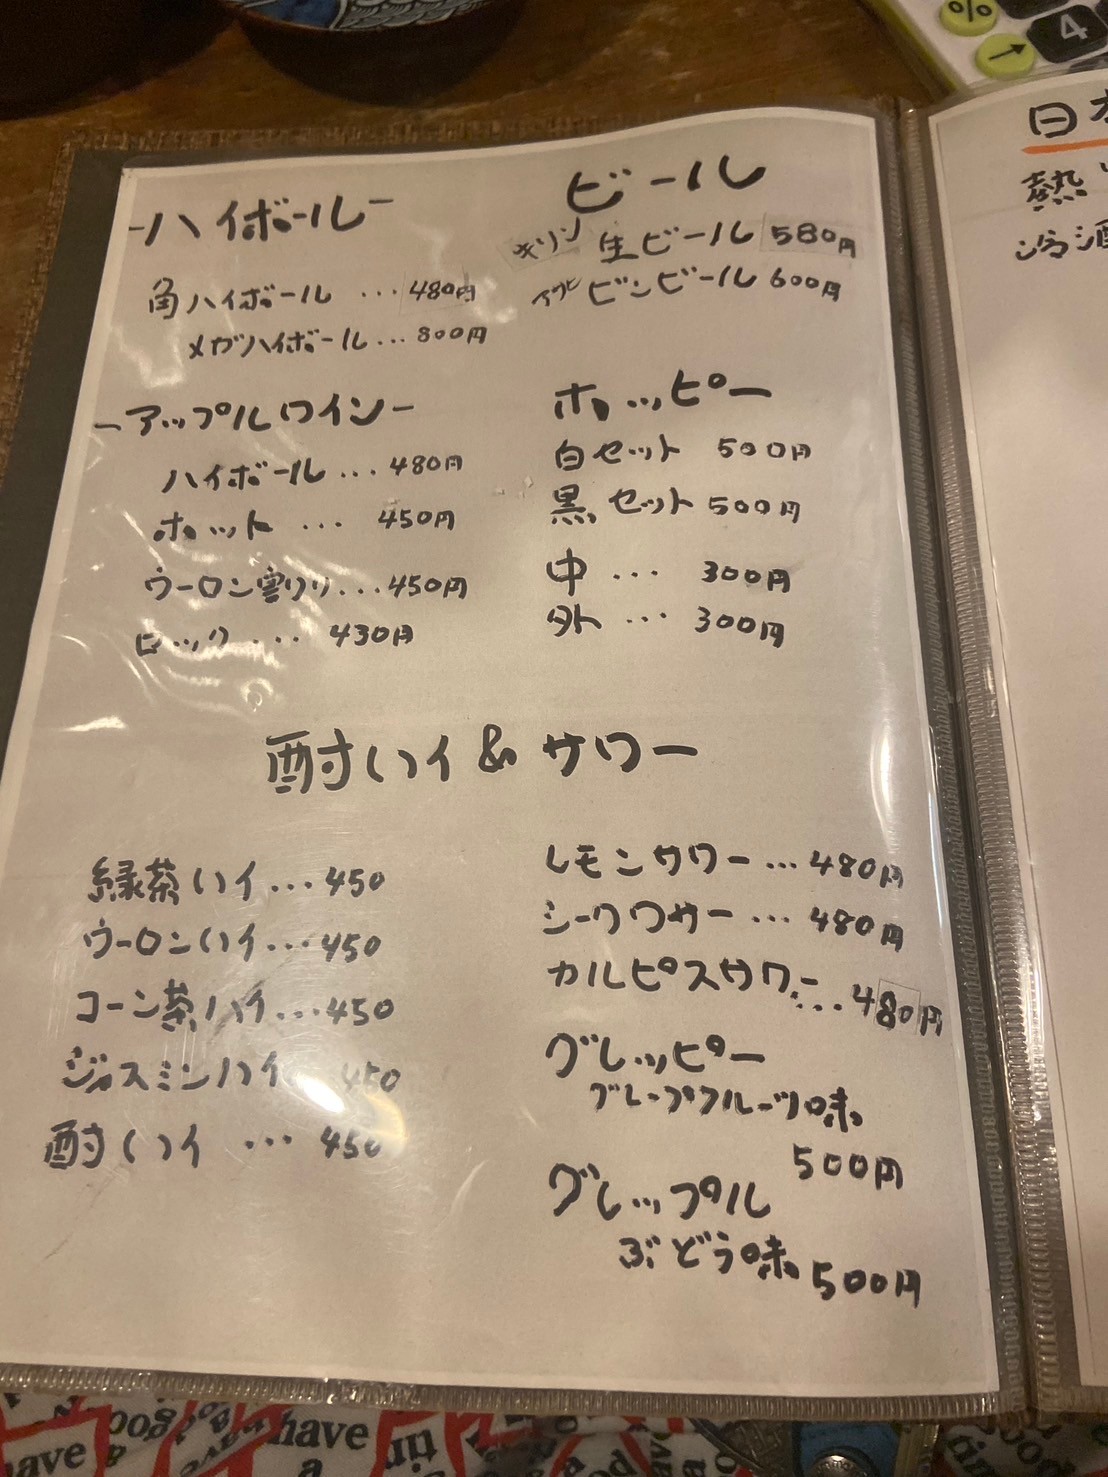 -ハイボール-
角ハイボール ... 480円
メガハイボール ... 800円
-アップルワイン-
ハイボール ... 480円
ホット ... 450円
ウーロン割り ... 450円
ロック ... 430円
ビール
キリン 生ビール 580円
アサヒ ビンビール 600円
ホッピー
白セット 500円
黒セット 500円
中 ... 300円
外 ... 300円
酎ハイ & サワー
緑茶ハイ ... 450
ウーロンハイ ... 450
コーン茶ハイ ... 450
ジャスミンハイ 450
酎ハイ ... 450
レモンサワー ... 480円
シークワサー ... 480円
カルピスサワー ... 480円
グレッピー
グレープフルーツ味
500円
グレップル
ぶどう味 500円
日
熱
冷酒
%
→
4
have
have
a
in